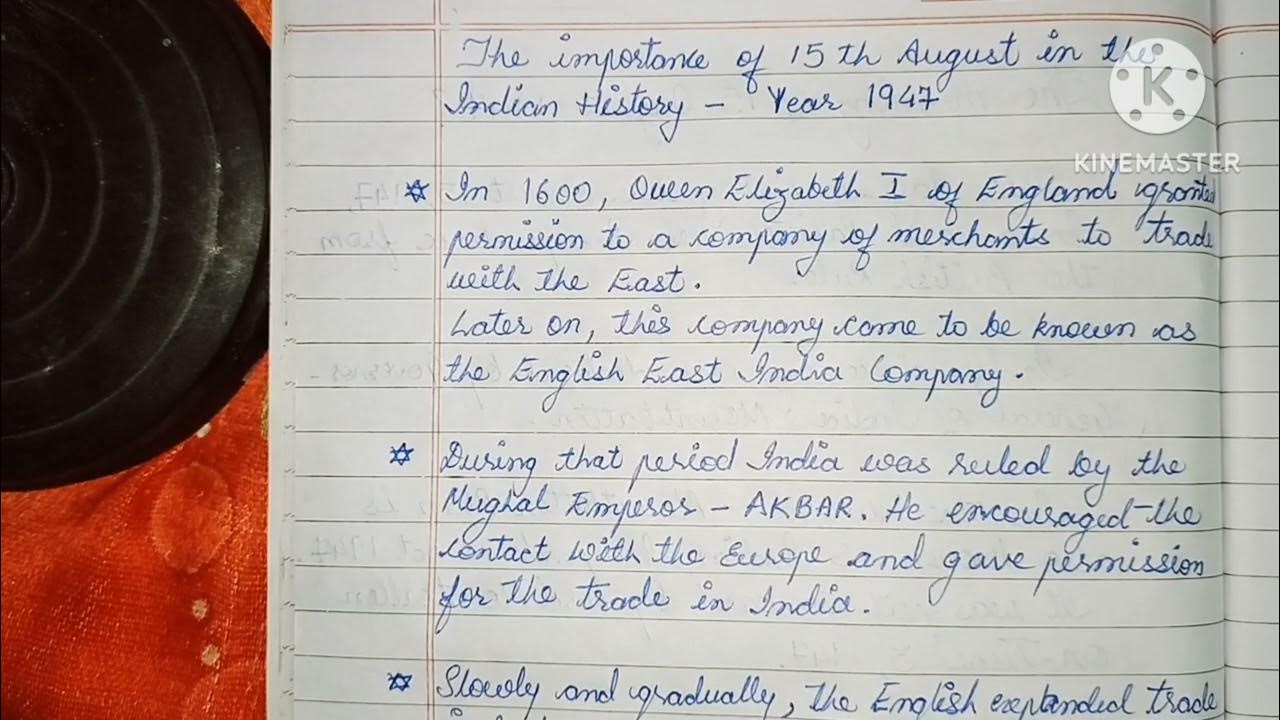 The importance of 15 th August in the
Indian History - Year 1947
KINEMASTER
In 1600, Queen Elizabeth I of England granted
permission to a company of merchants to trade
with the East.
Later on, this company come to be known as
the English East India Company.
During that period India was ruled by the
Mughal Emperor - AKBAR. He encouraged the
contact with the Europe and gave permission
for the trade in India.
Slowly and gradually, the English expanded trade